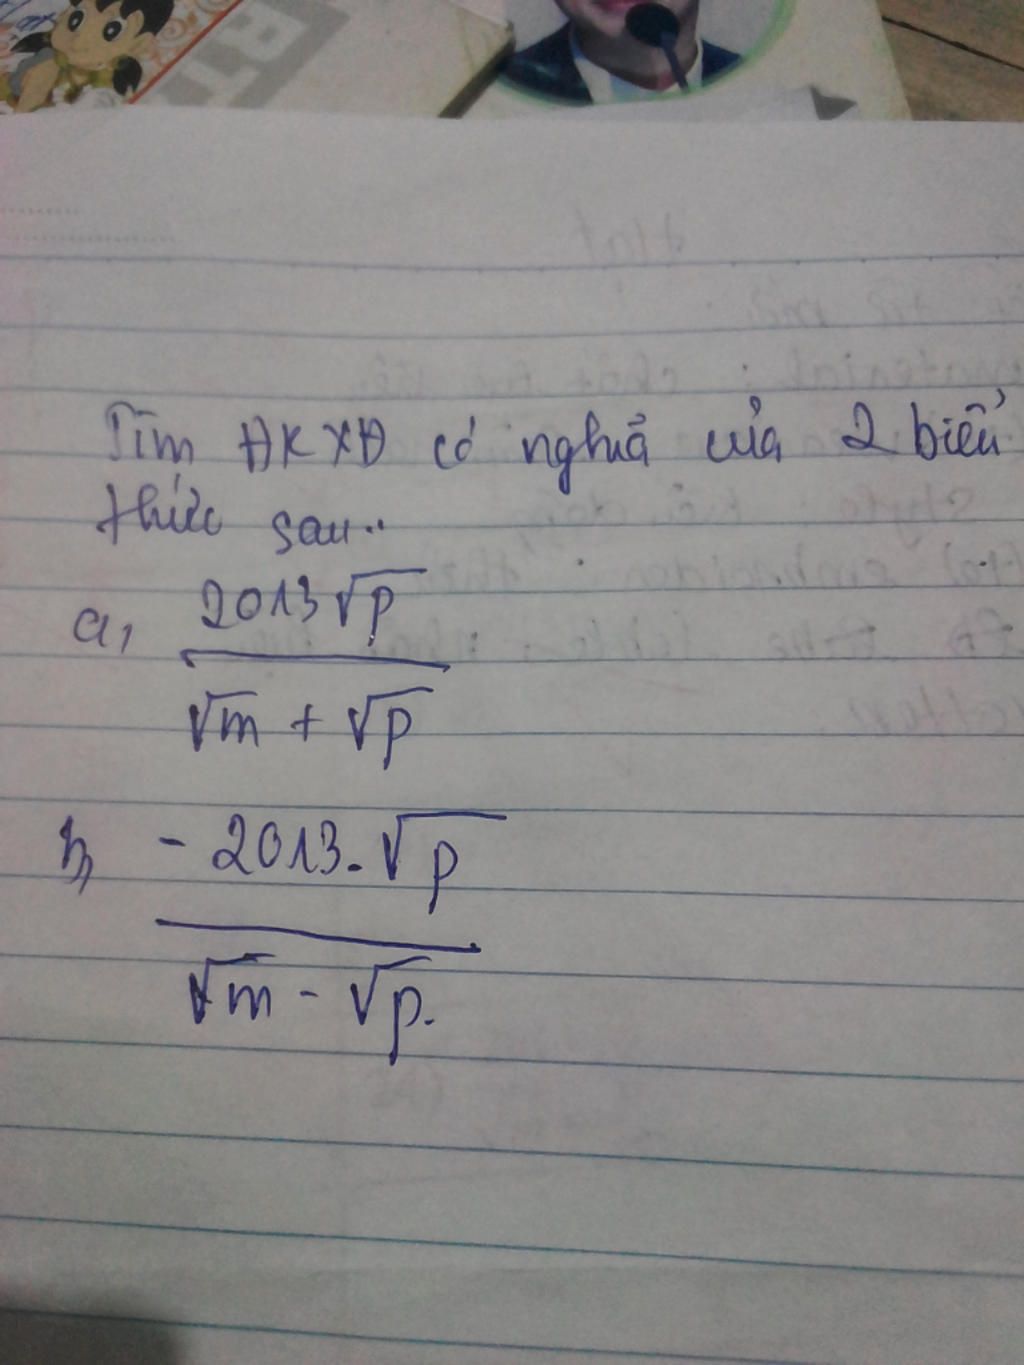 Tìm ĐKXĐ có nghĩa của 2 biểu
thức sau..
a, 2013√p
√m + √p
b, - 2013.√p
√m - √p.